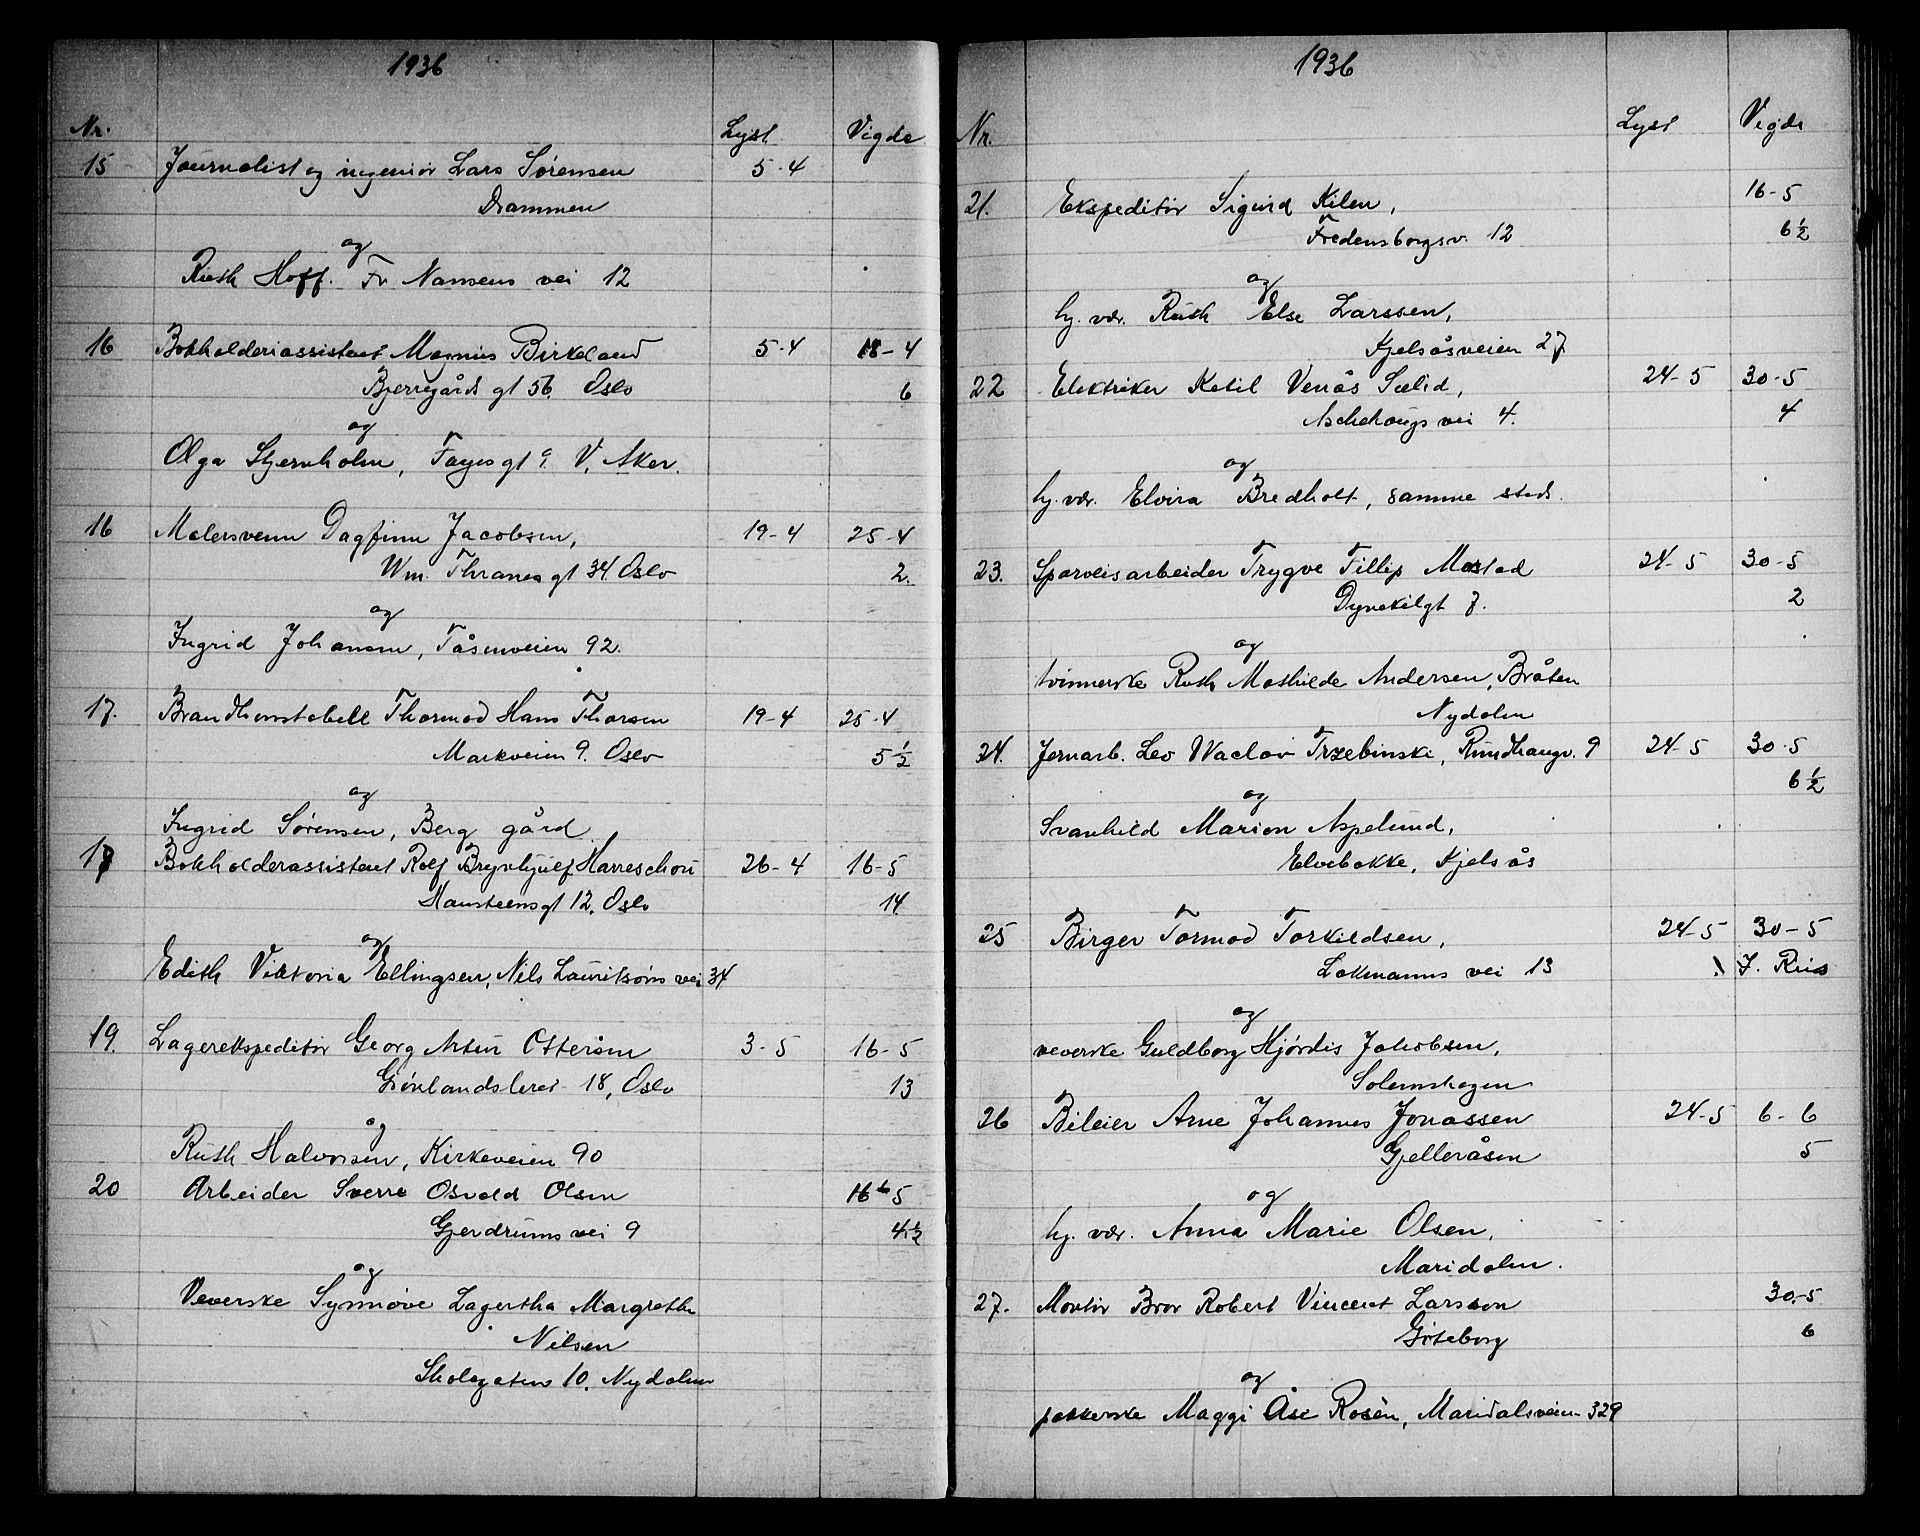 1936
Nr. Lyst Vigde
15 Journalist og ingeniør Lars Sørensen 5-4
Drammen
og
Ruth Hoff. Fr Nansens vei 12
16 Bokholderiassistent Magnus Birkeland 5-4 18-4
Bjerregårds gt 56. Oslo 6
og
Olga Stjernholm, Fayes gt 9. V. Aker.
16 Malersvenn Dagfinn Jacobsen, 19-4 25-4
Wm. Thranes gt 34. Oslo 2.
og
Ingrid Johansen, Tåsenveien 92.
17. Brandkonstabell Thormod Hans Thorsen 19-4 25-4
Markveien 9. Oslo 5½
og
Ingrid Sørensen, Berg gård
18 Bokholderassistent Rolf Brynhjulf Harreschou 26-4 16-5
Hansteensgt 12. Oslo 14
og
Edith Viktoria Ellingsen, Nils Lauritsøns vei 34
19. Lagerekspeditør Georg Artur Ottersen 3-5 16-5
Grønlandsleret 18, Oslo 13
og
Ruth Halvorsen, Kirkeveien 90
20 Arbeider Sverre Osvald Olsen 16-5
Gjerdrums vei 9 4½
og
Veverske Synnøve Lagertha Margrethe
Nilsen
Skolegaten 10. Nydalen
1936
Nr. Lyst Vigde
21. Ekspeditør Sigurd Kilen, 16-5
Fredensborgsv. 12 6½
og
hj. vær. Ruth Else Larssen,
Kjelsåsveien 27.
22 Elektriker Ketil Venås Sælid, 24-5 30-5
Aschehougs vei 4. 4
og
hj. vær. Elvira Bredholt, samme sted.
23. Sporveisarbeider Trygve Fillip Mostad 24-5 30-5
Dynekilgt 7. 2
og
tvinnerske Ruth Mathilde Andersen, Bråten
Nydalen
24. Jernarb. Leo Waclav Trzebinski, Rundhaugv. 9 24-5 30-5
6½
og
Svanhild Marion Aspelund,
Elvebakke, Kjelsås
25 Birger Tormod Torkildsen, 24-5 30-5
Lakmanns vei 13 J. Riis
og
veverske Guldborg Hjørdis Jakobsen,
Solemskogen
26 Bileier Arne Johannes Jonassen 24-5 6-6
Gjelleråsen 5
og
hj. vær. Anna Marie Olsen,
Maridalen.
27. Montør Bror Robert Vincent Larsson 30-5
Göteborg 6
og
pakkerske Maggi Åse Rosén, Maridalsveien 329